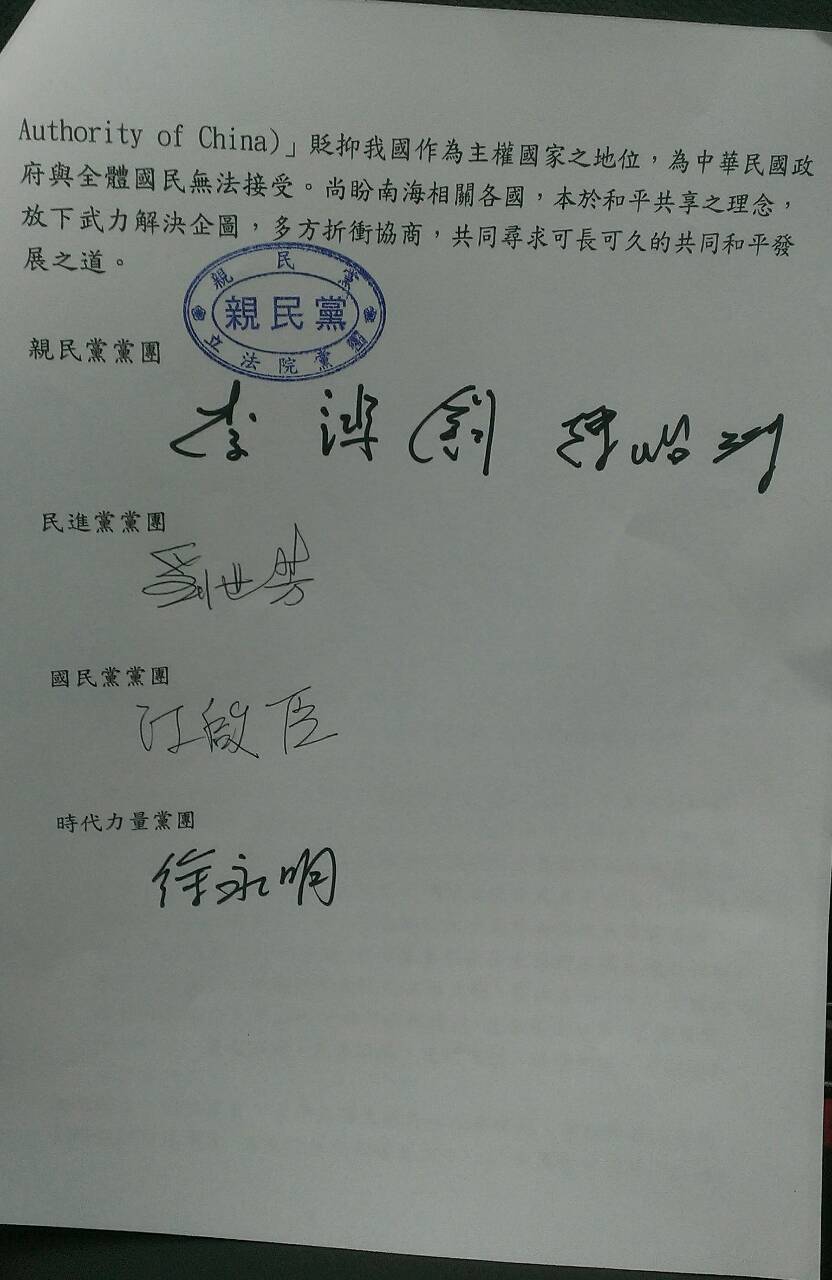 Authority of China)」貶抑我國作為主權國家之地位，為中華民國政
府與全體國民無法接受。尚盼南海相關各國，本於和平共享之理念，
放下武力解決企圖，多方折衝協商，共同尋求可長可久的共同和平發
展之道。
親民黨
親民黨
立法院黨團
親民黨黨團
李鴻鈞 陳怡潔
民進黨黨團
劉世芳
國民黨黨團
江啟臣
時代力量黨團
徐永明